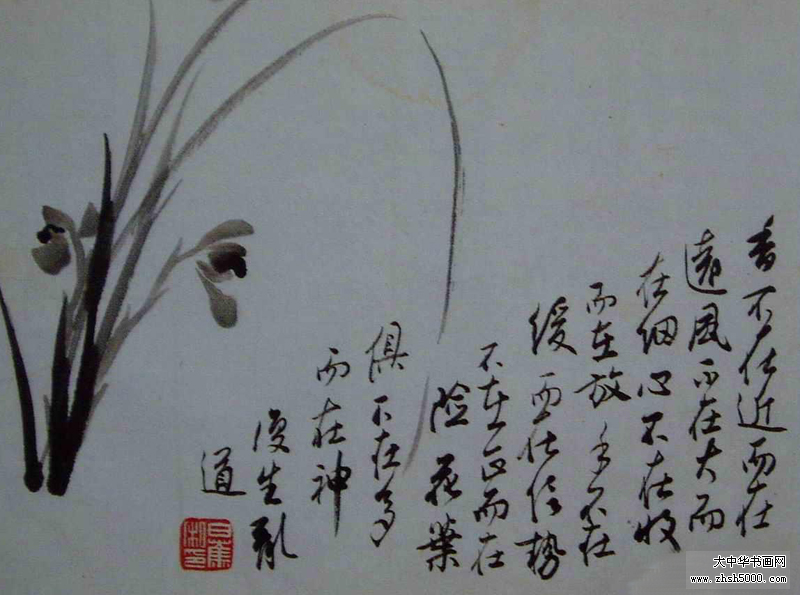 香不在近而在
遠風不在大而
在细心不在收
而在放手不在
緩而在势
不在正而在
险花葉
俱不在多
而在神
復生
道
大中华书画网
www.zhsh5000.com